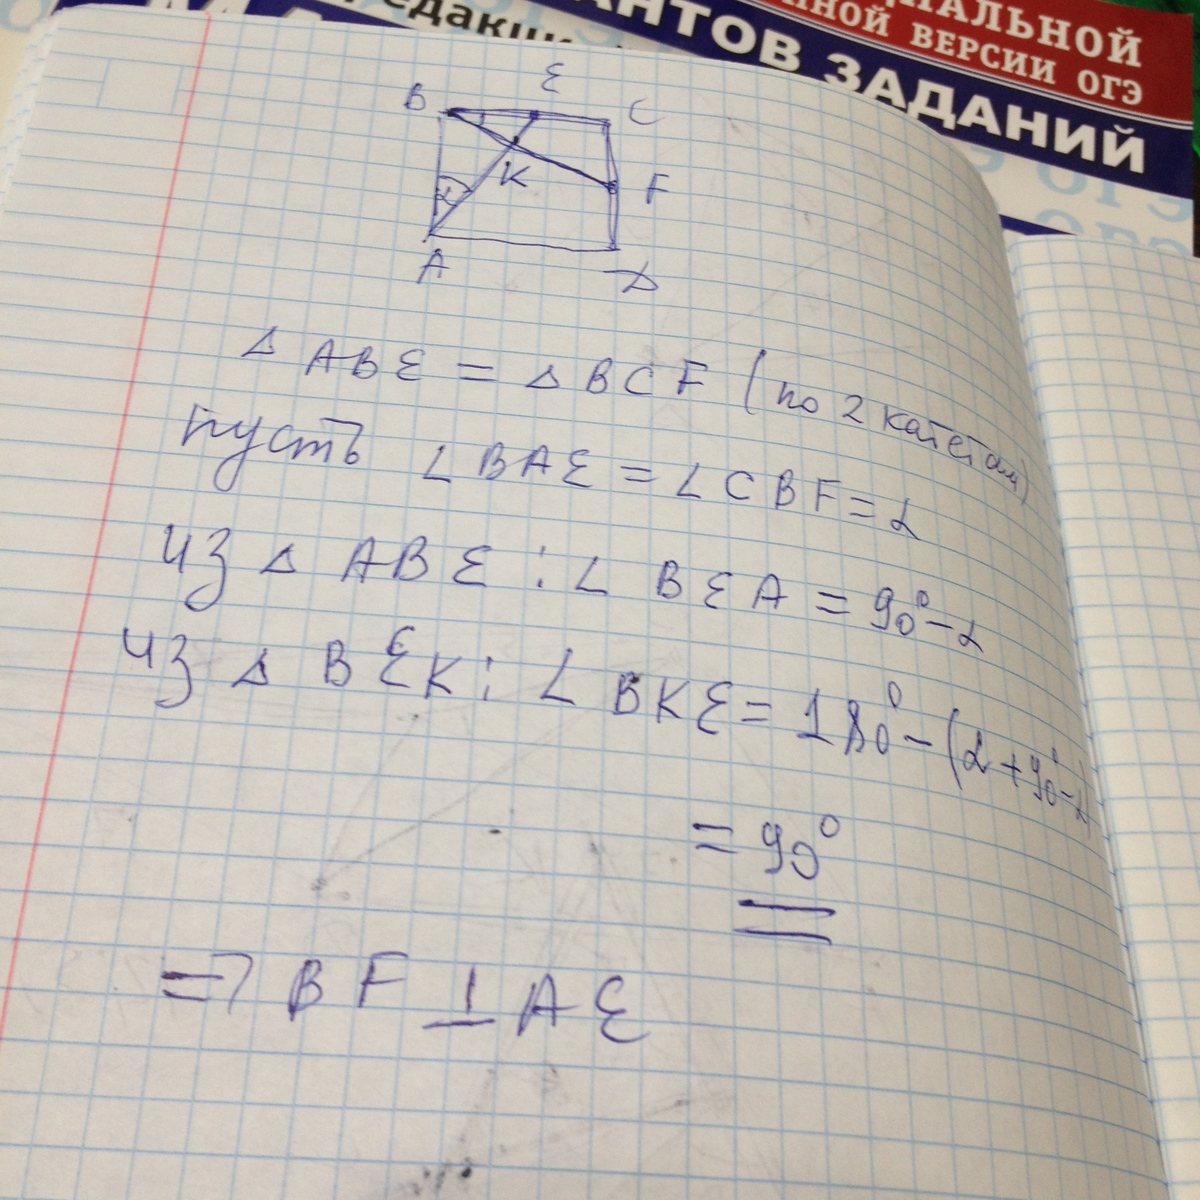 НАЛЬНОЙ
ННОЙ ВЕРСИИ ОГЭ
АНТОВ ЗАДАНИЙ
едакци
B E C
K F
α
A D
Δ ABE = Δ BCF (по 2 катетам)
пусть ∠ BAE = ∠ CBF = α
из Δ ABE : ∠ BEA = 90° - α
из Δ BEK : ∠ BKE = 180° - (α + 90° - α)
= 90°
=> BF ⊥ AE